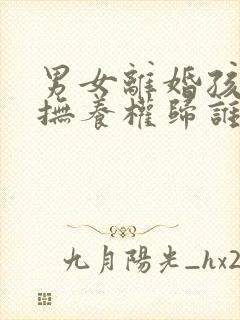 男女離婚孩
撫養權歸誰
九月陽光_hx2